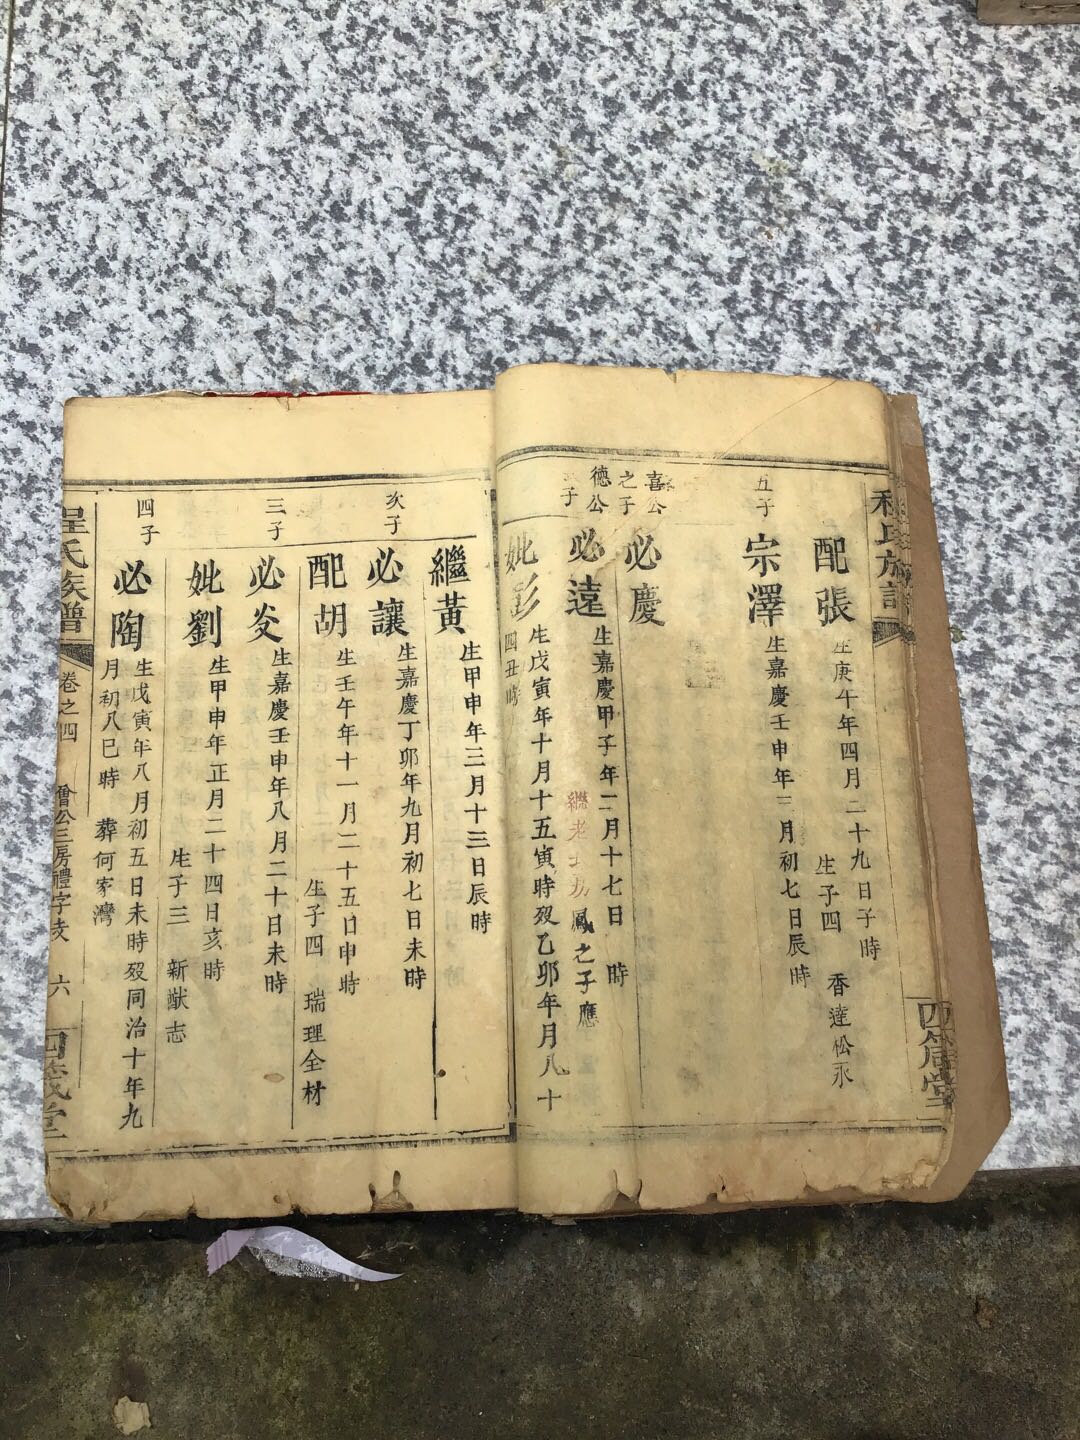 程氏族譜
四箴堂
配張
生庚午年四月二十九日子時
生子四 香達松永
五子
宗澤
生嘉慶壬申年三月初七日辰時
喜公
之子
必慶
德公
子
必遠
生嘉慶甲子年二月十七日 時
繼老 鳳之子應
妣彭
生戊寅年十月十五寅時歿乙卯年月八十
四丑時
繼黃
生甲申年三月十三日辰時
次子
必讓
生嘉慶丁卯年九月初七日未時
配胡
生壬午年十一月二十五日申時
生子四 瑞理全材
三子
必炎
生嘉慶壬申年八月二十日未時
妣劉
生甲申年正月二十四日亥時
生子三 新猷志
四子
必陶
生戊寅年八月初五日未時歿同治十年九
月初八巳時 葬何家灣
程氏族譜
卷之四
僧公三房禮字支
六
四箴堂